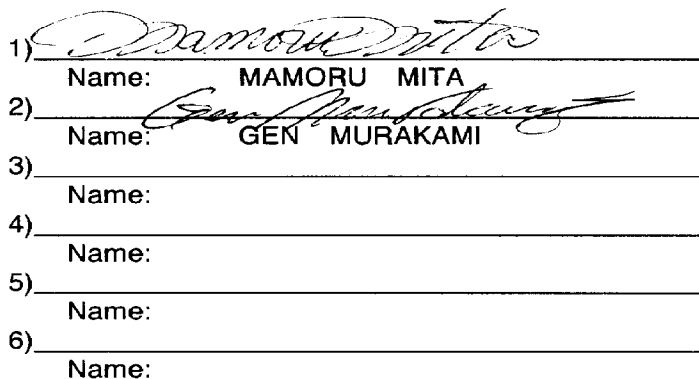 1) Mamoru Mita
Name: MAMORU MITA
2) Gen Murakami
Name: GEN MURAKAMI
3)
Name:
4)
Name:
5)
Name:
6)
Name: